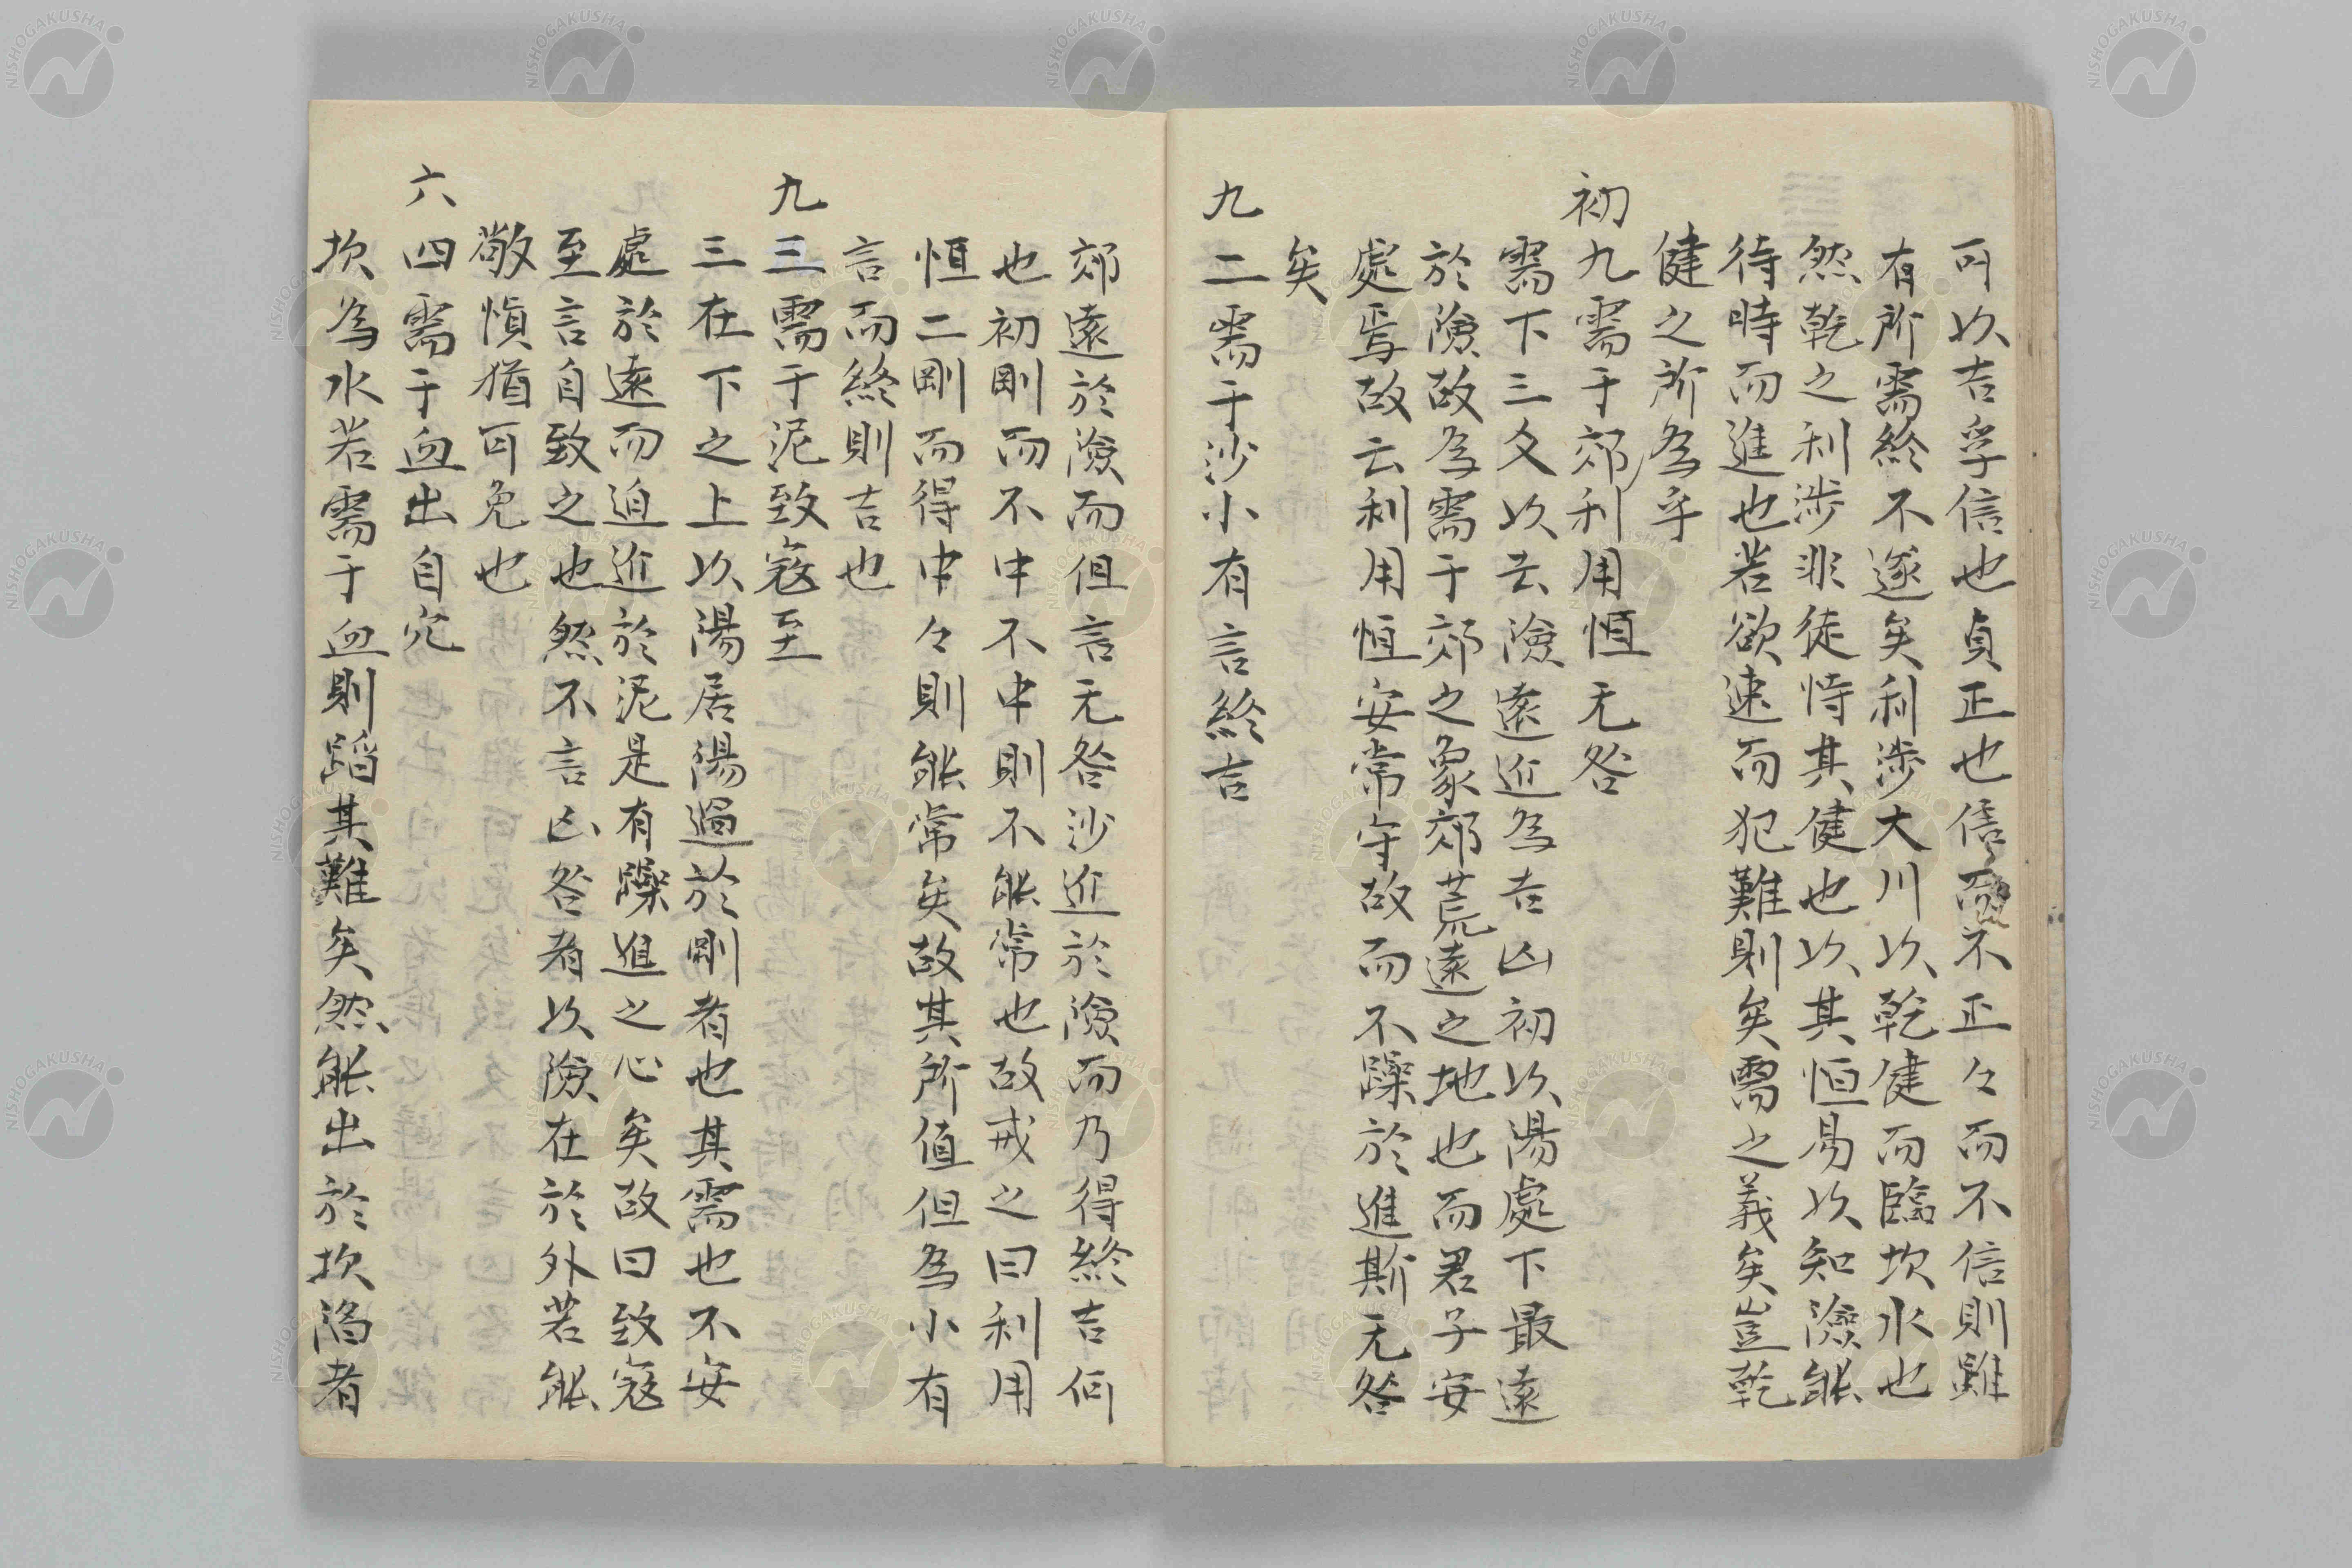 可以吉孚信也貞正也信而不正々而不信則雖
有所需終不遂矣利涉大川以乾健而臨坎水也
然乾之利涉非徒恃其健也以其恒易以知險能
待時而進也若欲速而犯難則矣需之義矣豈乾
健之所為乎
初九需于郊利用恒无咎
需下三爻以去險遠近為吉凶初以陽處下最遠
於險故為需于郊之象郊荒遠之地也而君子安
處焉故云利用恒安常守故而不躁於進斯无咎
矣
九二需于沙小有言終吉
郊遠於險而但言无咎沙近於險而乃得終吉何
也初剛而不中不中則不能常也故戒之曰利用
恒二剛而得中々則能常矣故其所值但為小有
言而終則吉也
九三需于泥致寇至
三在下之上以陽居陽過於剛者也其需也不安
處於遠而迫近於泥是有躁進之心矣故曰致寇
至言自致之也然不言凶咎者以險在於外若能
敬慎猶可免也
六四需于血出自穴
坎為水若需于血則蹈其難矣然能出於坎陷者
NISHOGAKUSHA